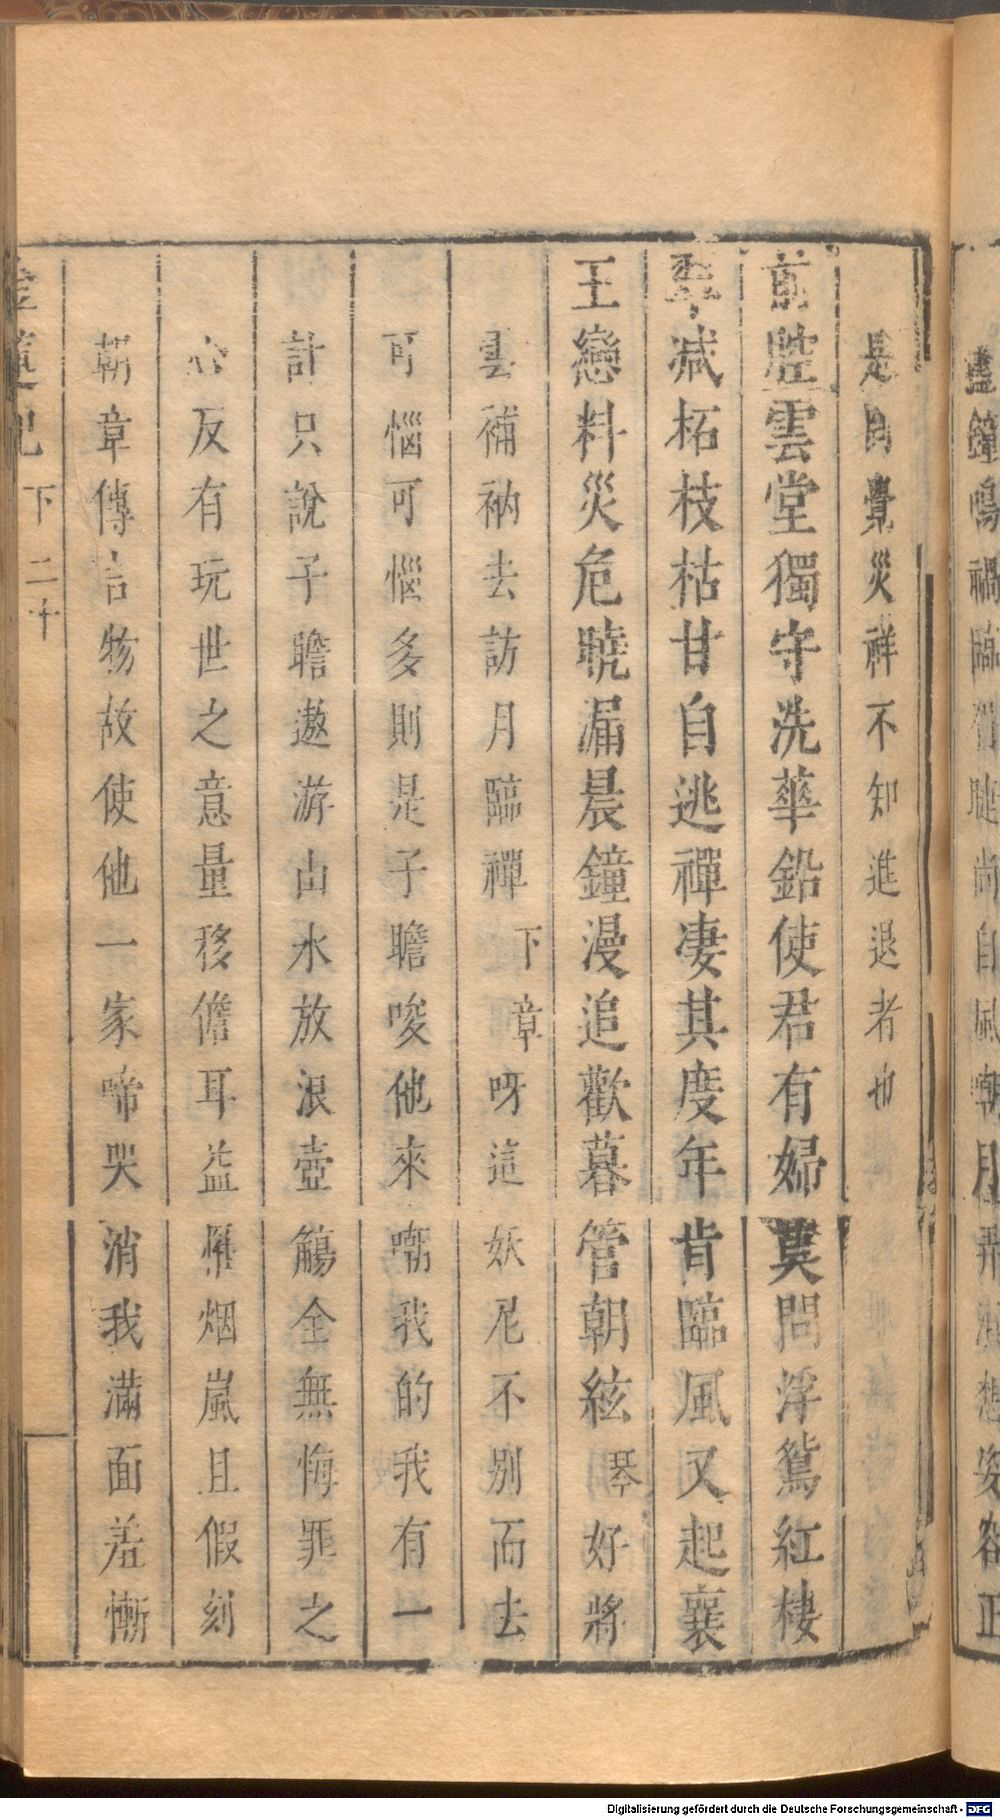 盡鐘鳴禍臨
尚自風朝月
想姿容正
是自覺災祥不知進退者也
前腔雲堂獨守洗華鉛使君有婦莫問浮鴛紅樓
翠减柘枝枯甘自逃禪凄其度年肯臨風又起襄
王戀料災危曉漏晨鐘漫追歡暮管朝絃琴好將
雲補衲去訪月臨禪下章呀這妖尼不别而去
可惱可惱多則是子瞻唆他來嘲我的我有一
計只說子瞻遨游山水放浪壺觴全無悔罪之
心反有玩世之意量移儋耳益懼烟嵐且假刻
朝章傳言物故使他一家啼哭消我滿面羞慚
記 下 二十
Digitalisierung gefördert durch die Deutsche Forschungsgemeinschaft - DFG